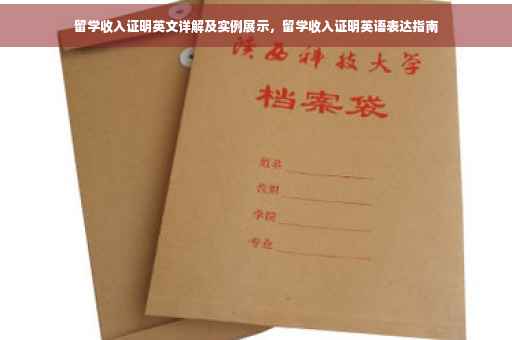 留学收入证明英文详解及实例展示，留学收入证明英语表达指南
陕西科技大学
档案袋
姓名
学院
专业